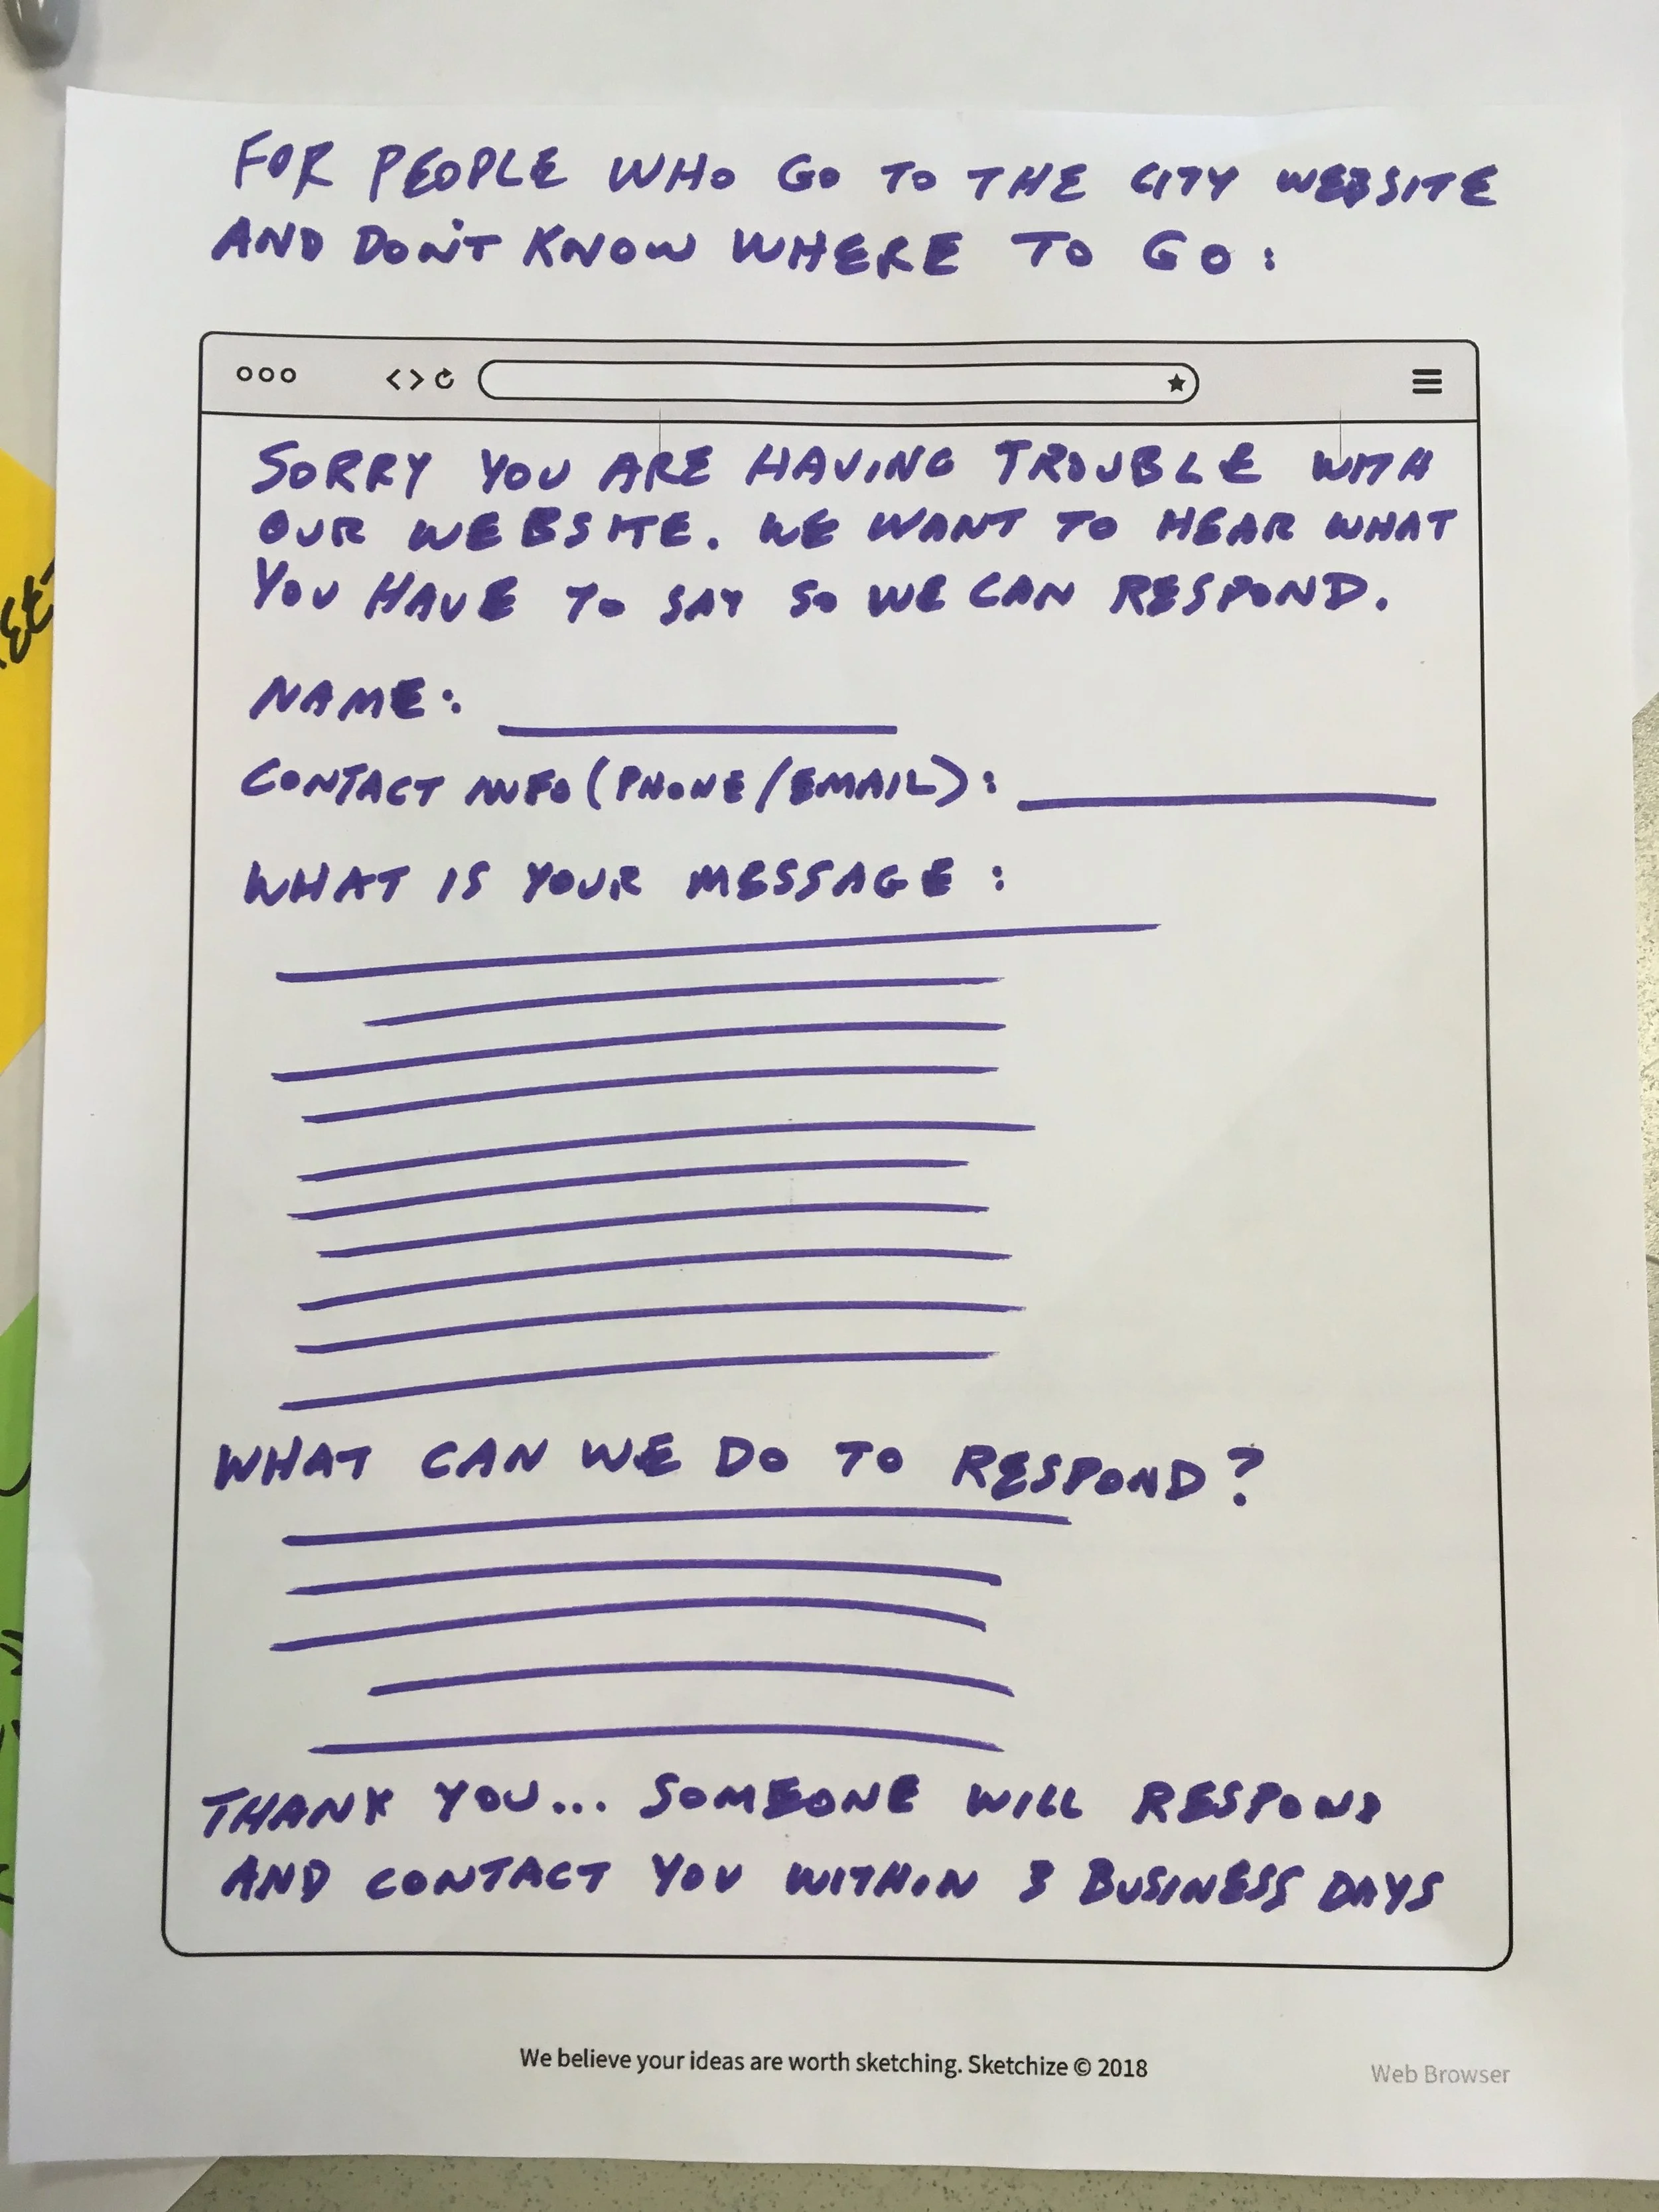 FOR PEOPLE WHO GO TO THE CITY WEBSITE
AND DON'T KNOW WHERE TO GO:
SORRY YOU ARE HAVING TROUBLE WITH
OUR WEBSITE. WE WANT TO HEAR WHAT
YOU HAVE TO SAY SO WE CAN RESPOND.
NAME:
CONTACT INFO (PHONE/EMAIL):
WHAT IS YOUR MESSAGE:
WHAT CAN WE DO TO RESPOND?
THANK YOU... SOMEONE WILL RESPOND
AND CONTACT YOU WITHIN 3 BUSINESS DAYS
We believe your ideas are worth sketching. Sketchize © 2018
Web Browser